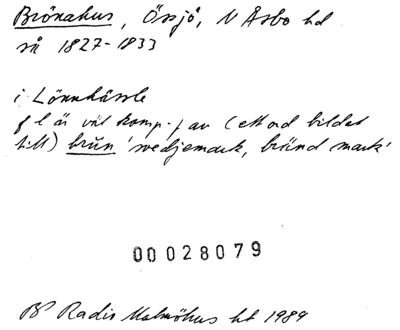 Brönahus, Össjö, N Åsbo hd
så 1827-1833
i Lönnhässle
f l är väl komp. f av (ett ord bildat
till) brun 'svedjemark, bränd mark'
00028079
Radis Malmöhus hd 1989